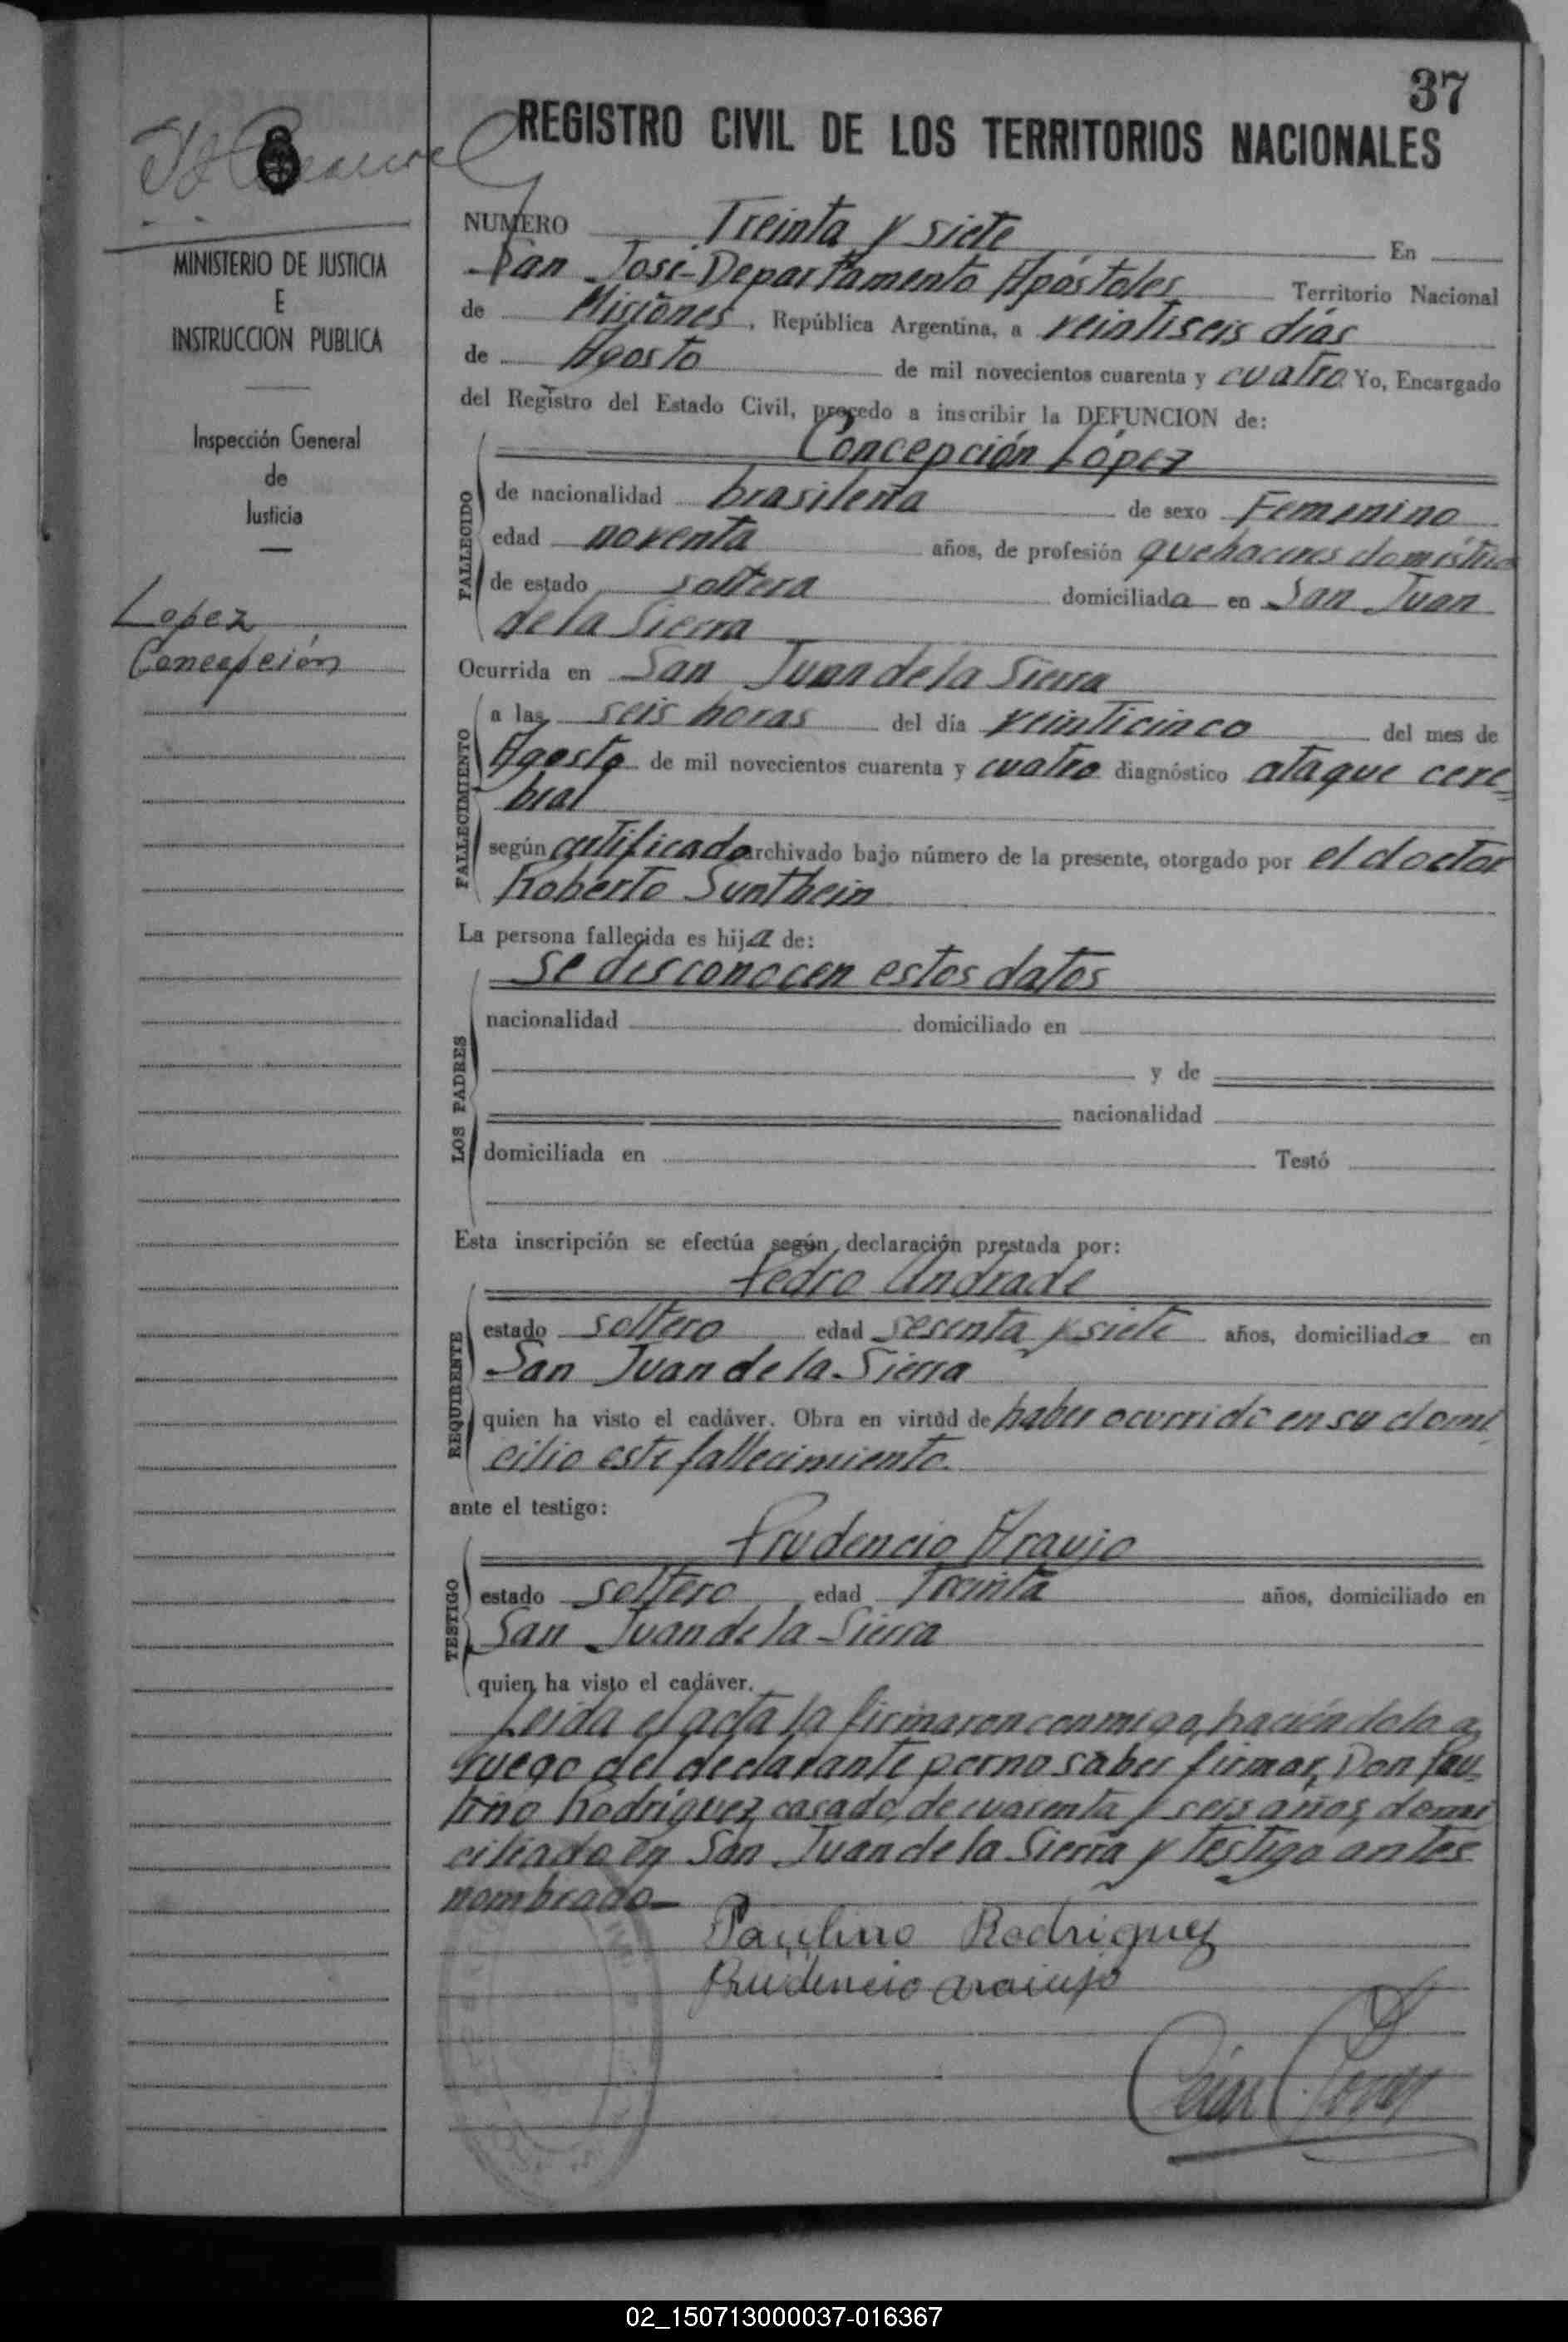 37
REGISTRO CIVIL DE LOS TERRITORIOS NACIONALES
MINISTERIO DE JUSTICIA
E
INSTRUCCION PUBLICA
Inspección General
de
Justicia
Lopez
Concepción
NUMERO Treinta y siete En
San José-Departamento Apóstoles Territorio Nacional
de Misiones, República Argentina, a veintiseis días
de Agosto de mil novecientos cuarenta y cuatro Yo, Encargado
del Registro del Estado Civil, procedo a inscribir la DEFUNCION de:
Concepción López
FALLECIDO
de nacionalidad brasileña de sexo Femenino
edad noventa años, de profesión quehaceres doméstico
de estado soltera domiciliada en San Juan
de la Sierra
Ocurrida en San Juan de la Sierra
FALLECIMIENTO
a las seis horas del día veinticinco del mes de
Agosto de mil novecientos cuarenta y cuatro diagnóstico ataque cere=
bral
según certificado archivado bajo número de la presente, otorgado por el doctor
Roberto Sunthein
La persona fallecida es hija de:
se desconocen estos datos
LOS PADRES
nacionalidad domiciliado en
y de
nacionalidad
domiciliada en Testó
Esta inscripción se efectúa según declaración prestada por:
Pedro Andrade
REQUIRENTE
estado soltero edad sesenta y siete años, domiciliado en
San Juan de la Sierra
quien ha visto el cadáver. Obra en virtud de haber ocurrido en su domi
cilio este fallecimiento.
ante el testigo:
Prudencio Araujo
TESTIGO
estado soltero edad Treinta años, domiciliado en
San Juan de la Sierra
quien ha visto el cadáver.
Leida el acta la firmaron conmigo, haciéndolo a
ruego del declarante por no saber firmar, Don Pau=
lino Rodriguez, casado, de cuarenta y seis años, domi
ciliado en San Juan de la Sierra y testigo antes
nombrado—
Paulino Rodriguez
Prudencio Araujo
02_150713000037-016367